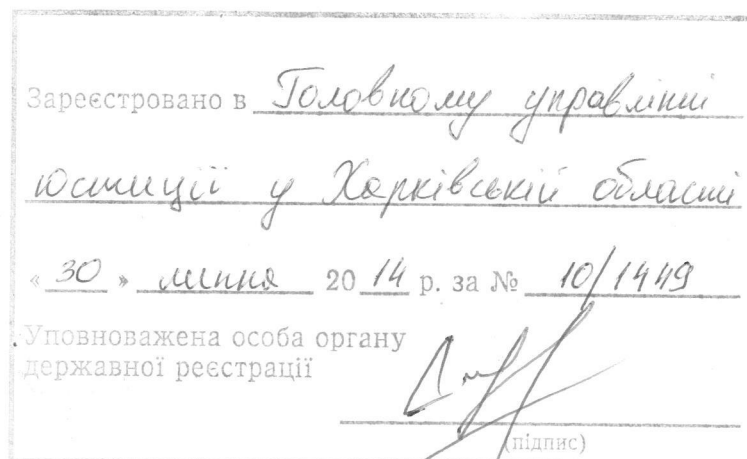 Зареєстровано в Головному управлінні
юстиції у Харківській області
« 30 » липня 20 14 р. за № 10/1449
Уповноважена особа органу
державної реєстрації
(підпис)